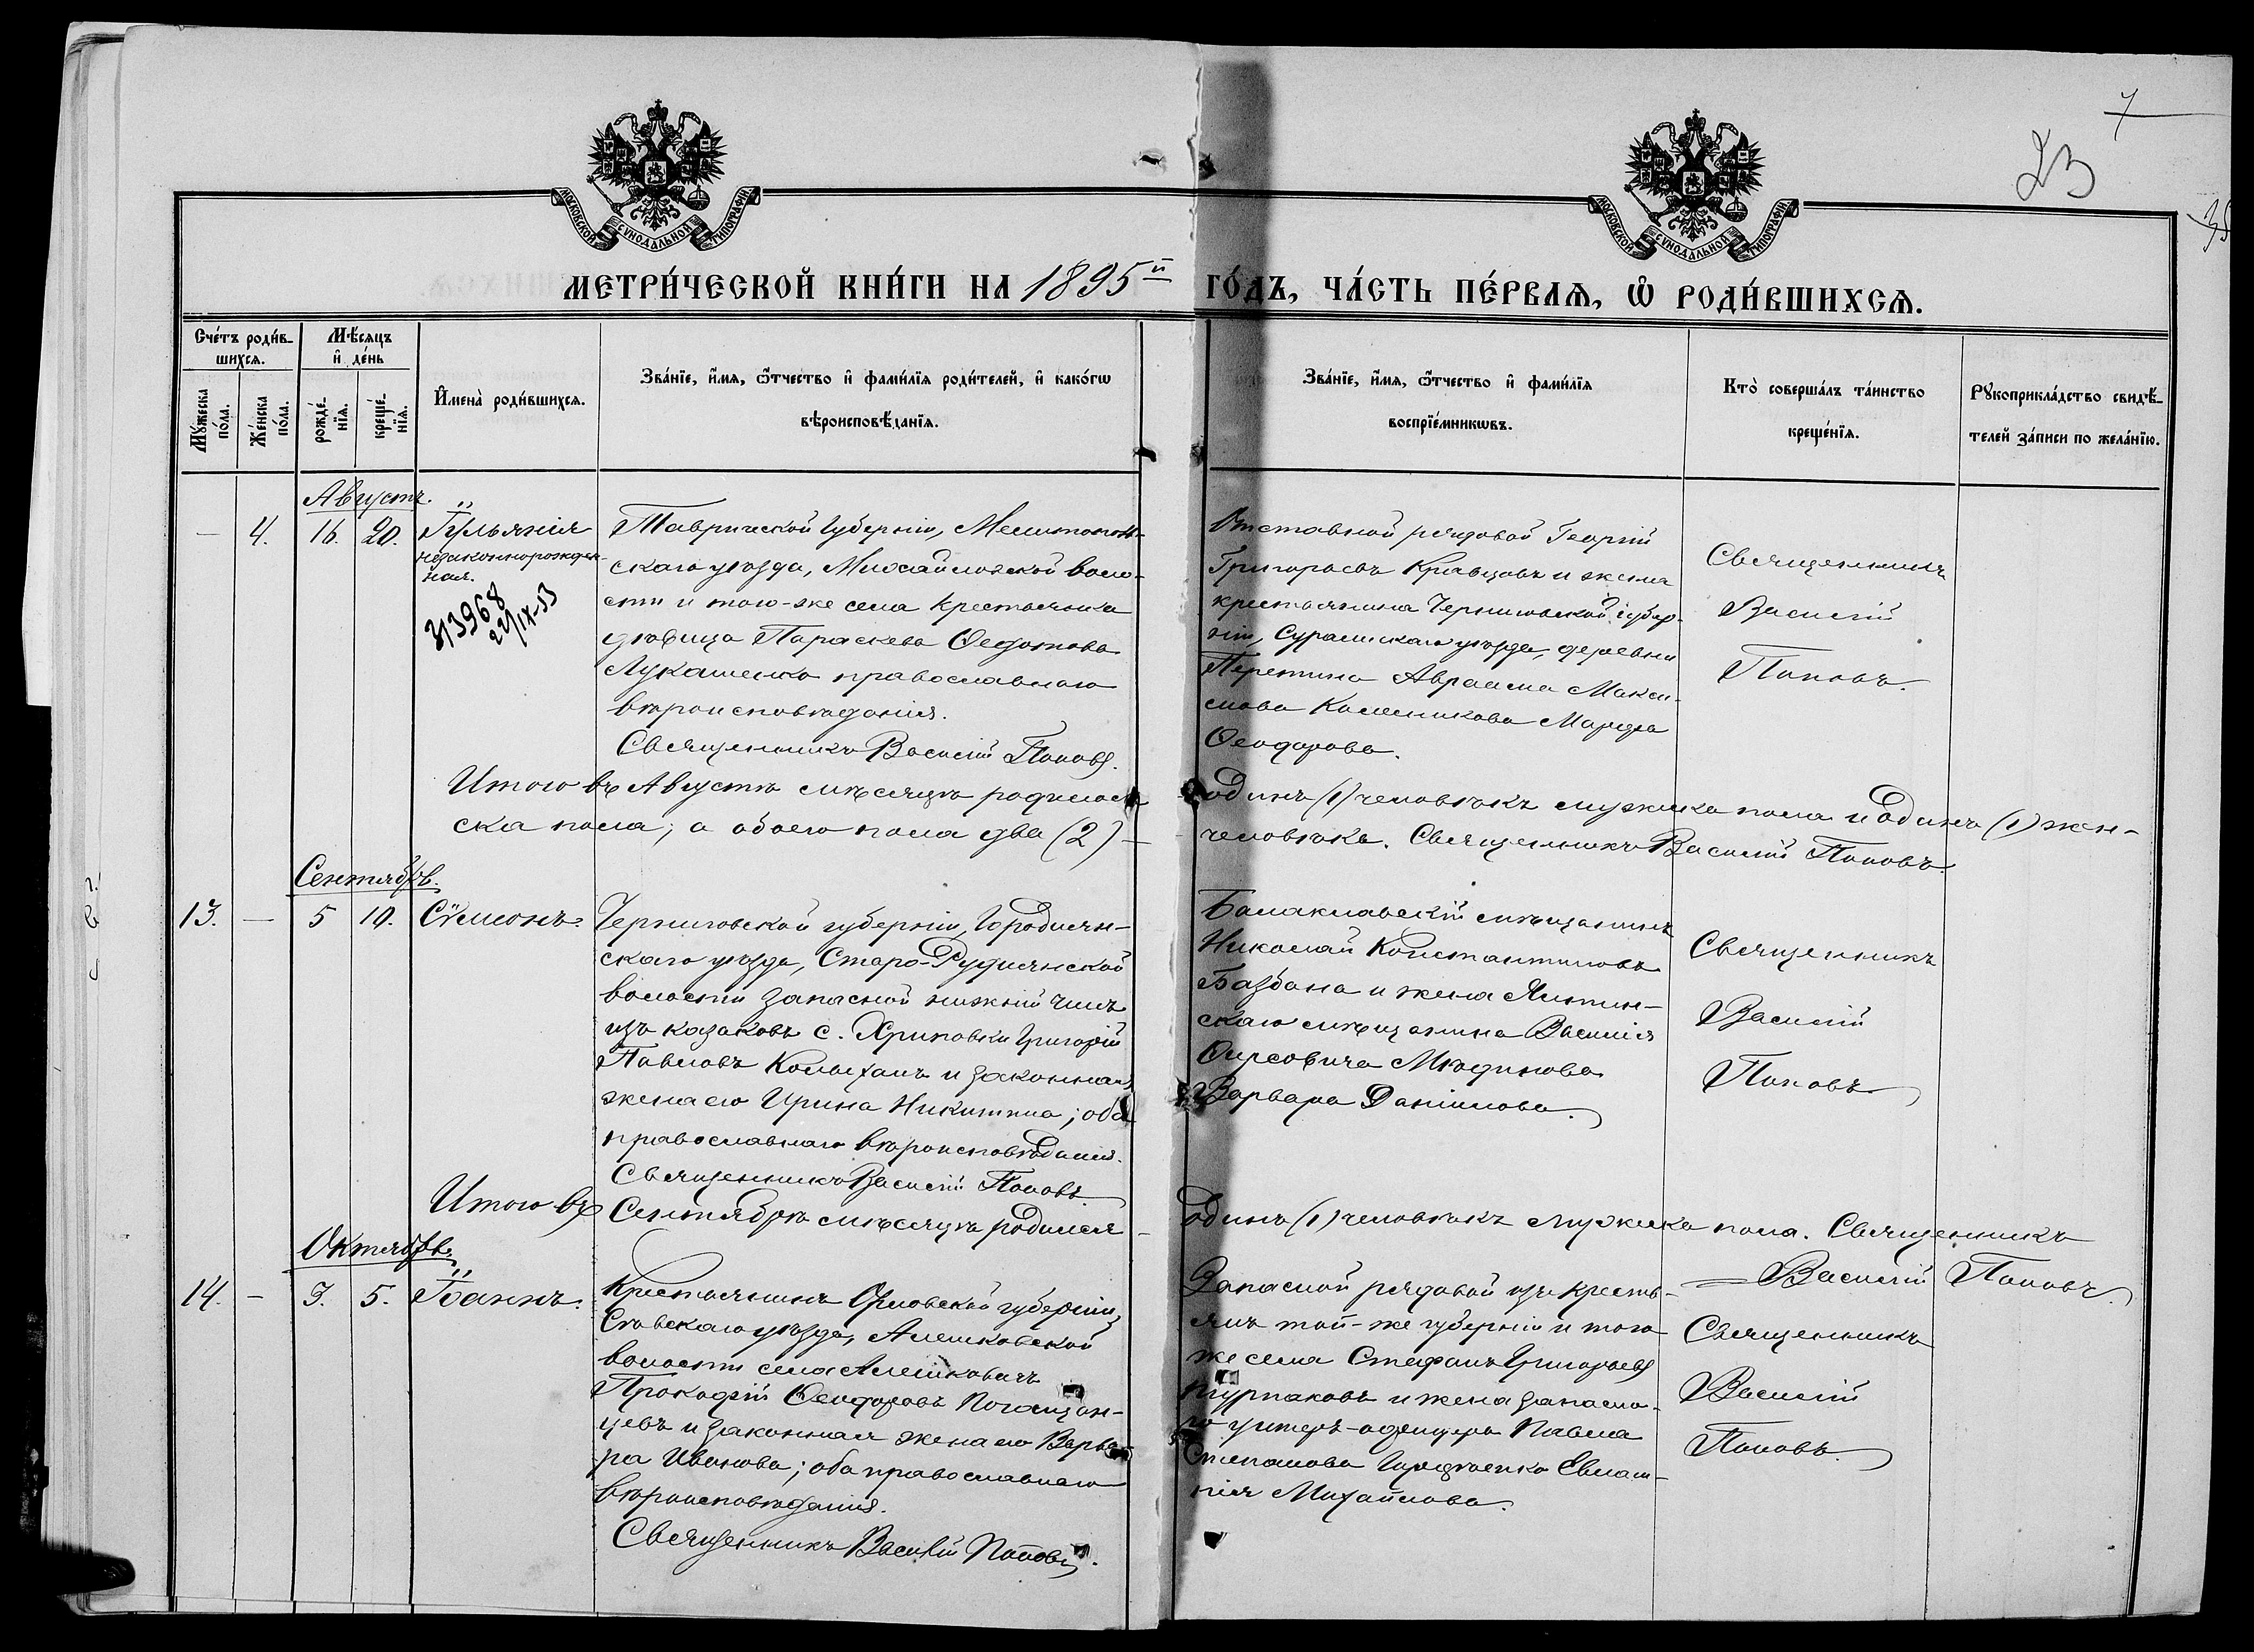 7
23
35
МОСКОВСКОЙ СѴНОДАЛЬНОЙ ТИПОГРАФІИ
МОСКОВСКОЙ СѴНОДАЛЬНОЙ ТИПОГРАФІИ
МЕТРИ́ЧЕСКОЙ КНИ́ГИ НА 1895й ГО́ДЪ, ЧА́СТЬ ПЕ́РВАѦ, Ѡ҆ РОДИ́ВШИХСѦ.
Сче́тъ роди́в-
шихсѧ.
Мѣ́сѧцъ
и҆ де́нь
Мꙋ́жеска
по́ла.
Же́нска
по́ла.
рожде́-
нїѧ.
креще́-
нїѧ.
И҆мена̀ роди́вшихсѧ.
Зва́нїе, и҆́мѧ, ѻ҆́тчество и҆ фами́лїѧ роди́телей, и҆ како́гѡ
вѣроисповѣ́данїѧ.
Зва́нїе, и҆́мѧ, ѻ҆́тчество и҆ фами́лїѧ
воспрїе́мникѡвъ.
Кто̀ соверша́лъ та́инство
креще́нїѧ.
Рꙋкоприкла́дство свидѣ́-
телей за́писи по жела́нїю.
Августъ.
— 4. 16. 20. Іуліанія
незаконнорожден-
ная.
313968
22/IX-53
Таврической губерніи, Мелитополь-
скаго уѣзда, Михайловской воло-
сти и того-же села крестьянка
дѣвица Параскева Ѳедотова
Лукашенко православнаго
вѣроисповѣданія.
Священникъ Василій Поповъ.
Отставной рядовой Георгій
Григорьевъ Кравцовъ и жена
крестьянина Черниговской губер-
ніи, Суражскаго уѣзда, деревни
Перетина Авраама Макси-
мова Калсникова Марѳа
Ѳеодорова.
Священникъ
Василій
Поповъ.
Итого въ Августѣ мѣсяцѣ родилось одинъ (1) человѣкъ мужска пола и одинъ (1) жен-
ска пола; а обоего пола два (2) — человѣка. Священникъ Василій Поповъ.
Сентябрь.
13. — 5 10. Сѷмеонъ.
Черниговской губерніи, Городнян-
скаго уѣзда, Старо-Руднянской
волости запасной нижній чинъ
изъ казаковъ с. Хриповки Григорій
Павловъ и законная
жена его Ирина Никитина; оба
православнаго вѣроисповѣданія.
Священникъ Василій Поповъ.
Балаклавскій мѣщанинъ
Николай Константиновъ
Базбана и жена Ялтин-
скаго мѣщанина Василія
Ѳирсовича Мюдинова
Варвара Даніилова.
Священникъ
Василій
Поповъ
Итого въ Сентябрѣ мѣсяцѣ родился — одинъ (1) человѣкъ мужска пола. Священникъ
Василій Поповъ.
Октябрь.
14. — 3. 5. Іоаннъ.
Крестьянинъ Орловской губерніи,
Сѣвскаго уѣзда, Алешковской
волости села Алешковичъ
Прокофій Ѳеодоровъ Поганцон-
цевъ и законная жена его Варва-
ра Иванова; оба православнаго
вѣроисповѣданія.
Священникъ Василій Поповъ.
Запасной рядовой изъ кресть-
янъ той-же губерніи и того
же села Стефанъ Григорьевъ
и жена запасна-
го унтеръ-офицера Павла
Степанова Евлам-
пія Михайлова.
Священникъ
Василій
Поповъ.